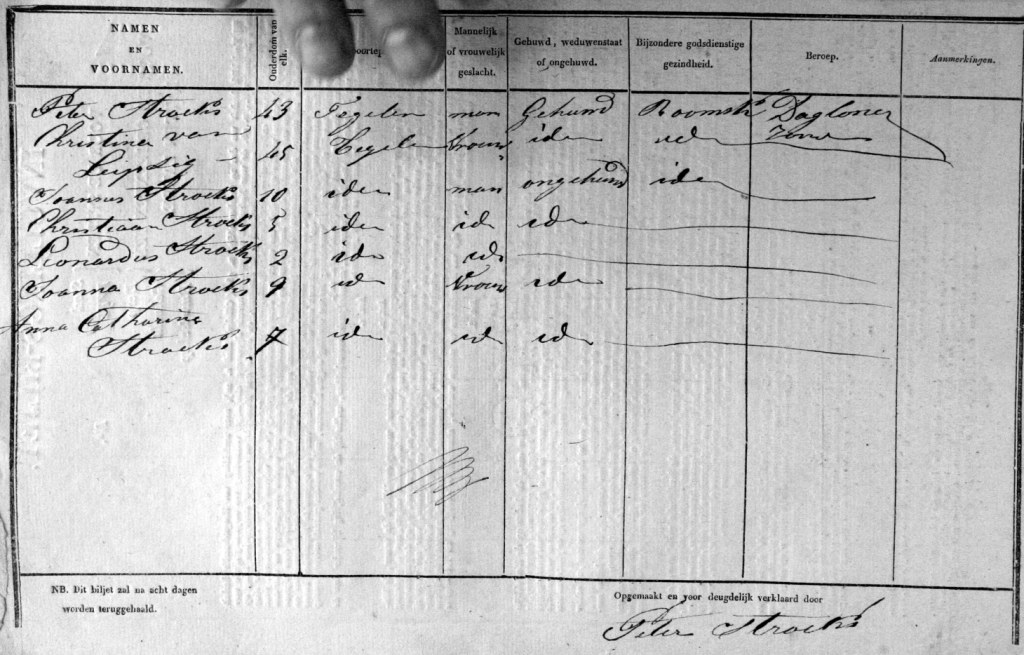 NAMEN
EN
VOORNAMEN.
Ouderdom van elk.
Mannelijk of vrouwelijk geslacht.
Gehuwd, weduwenstaat of ongehuwd.
Bijzondere godsdienstige gezindheid.
Beroep.
Aanmerkingen.
Peter Stroeks 43 Tegelen man Gehuwd Roomsk Dagloner
Christina van
Leipzig – 45 Tegelen Vrouw idem id
Joannes Stroeks 10 idem man ongehuwd idem
Christiaan Stroeks 5 idem id id
Leonardus Stroeks 2 id id
Joanna Stroeks 9 id Vrouw id
Anna Catharina
Stroeks 7 id id id
NB. Dit biljet zal na acht dagen
worden teruggehaald.
Opgemaakt en voor deugdelijk verklaard door
Peter Stroeks